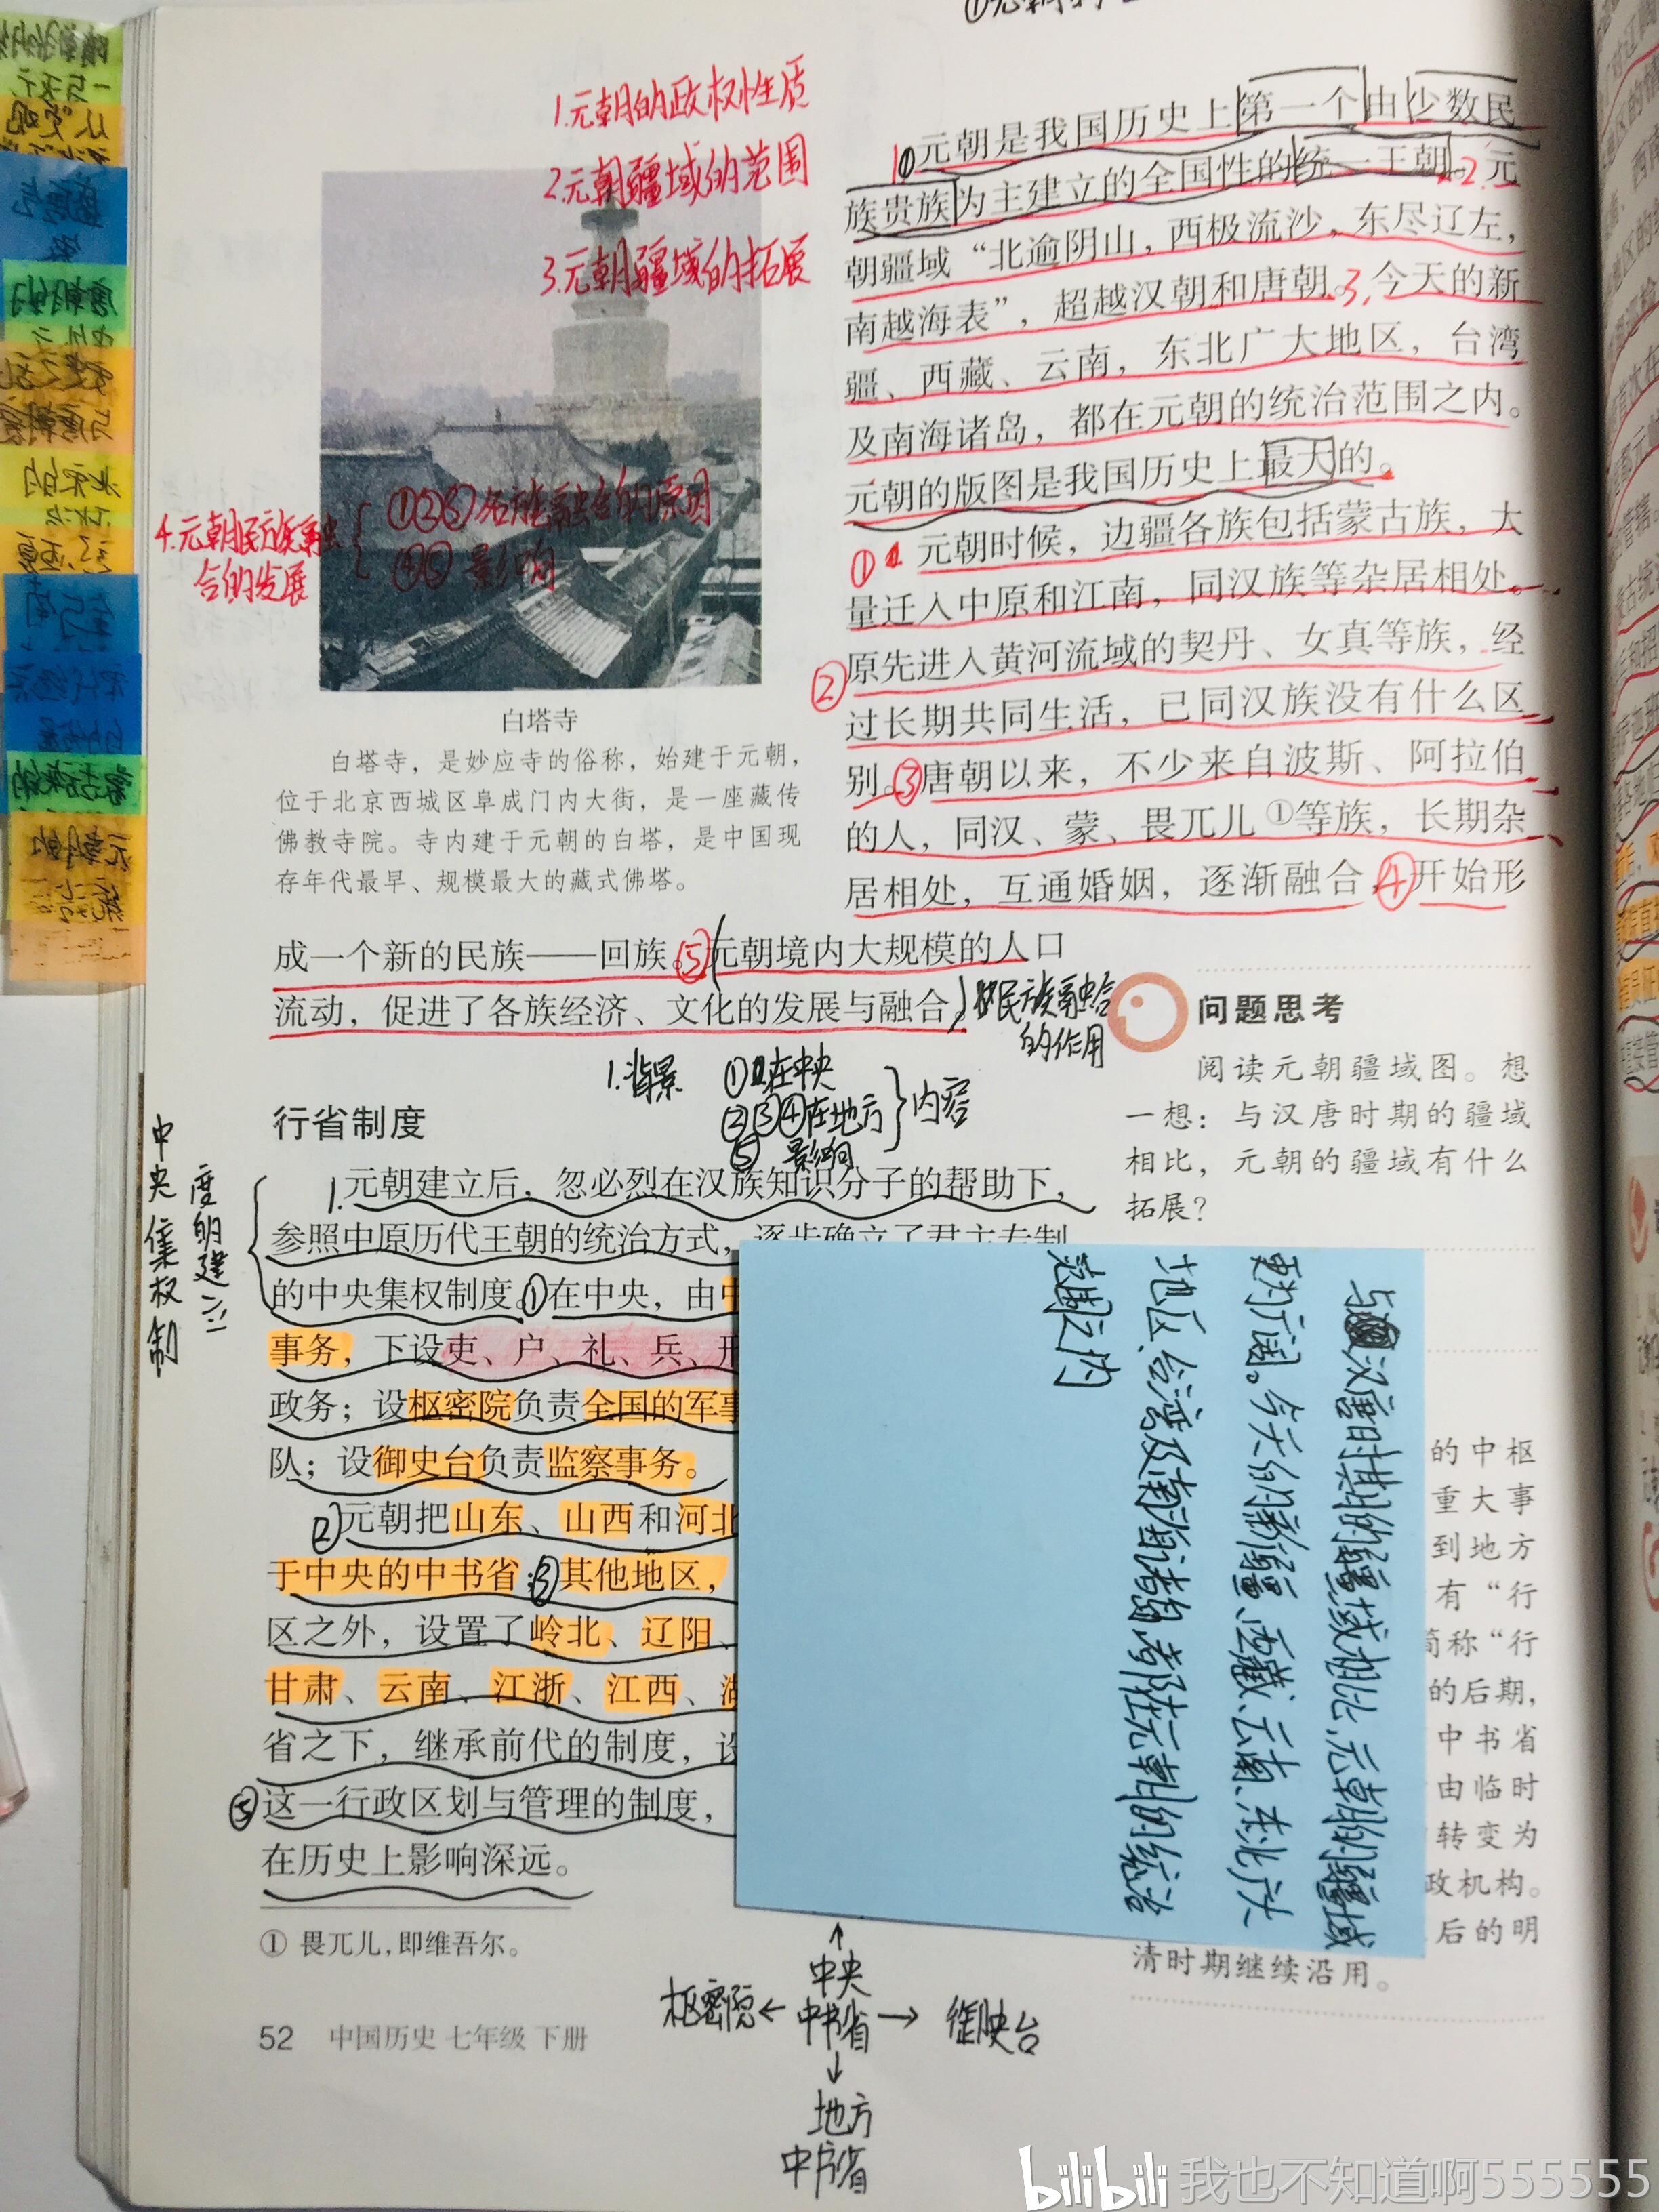 1.元朝的政权性质
2.元朝疆域的范围
3.元朝疆域的拓展
4.元朝民族融
合的发展
①②③各族融合的原因
④⑤影响
1.①元朝是我国历史上第一个由少数民
族贵族为主建立的全国性的统一王朝。2.元
朝疆域“北逾阴山，西极流沙，东尽辽左，
南越海表”，超越汉朝和唐朝。3.今天的新
疆、西藏、云南，东北广大地区，台湾
及南海诸岛，都在元朝的统治范围之内。
元朝的版图是我国历史上最大的。
①元朝时候，边疆各族包括蒙古族，大
量迁入中原和江南，同汉族等杂居相处。
②原先进入黄河流域的契丹、女真等族，经
过长期共同生活，已同汉族没有什么区
别。③唐朝以来，不少来自波斯、阿拉伯
的人，同汉、蒙、畏兀儿①等族，长期杂
居相处，互通婚姻，逐渐融合，④开始形
成一个新的民族——回族。⑤元朝境内大规模的人口
流动，促进了各族经济、文化的发展与融合。
民族融合
的作用
白塔寺
白塔寺，是妙应寺的俗称，始建于元朝，
位于北京西城区阜成门内大街，是一座藏传
佛教寺院。寺内建于元朝的白塔，是中国现
存年代最早、规模最大的藏式佛塔。
问题思考
阅读元朝疆域图。想
一想：与汉唐时期的疆域
相比，元朝的疆域有什么
拓展？
1.背景
①在中央
②③④在地方
内容
⑤影响
行省制度
中央集权制
度的建立
1.元朝建立后，忽必烈在汉族知识分子的帮助下，
参照中原历代王朝的统治方式，逐步确立了君主专制
的中央集权制度。①在中央，由中
事务，下设吏、户、礼、兵、刑
政务；设枢密院负责全国的军事
队；设御史台负责监察事务。
②元朝把山东、山西和河北
于中央的中书省；③其他地区，
区之外，设置了岭北、辽阳、
甘肃、云南、江浙、江西、湖
省之下，继承前代的制度，设
⑤这一行政区划与管理的制度，
在历史上影响深远。
与汉唐时期的疆域相比，元朝的疆域
更为广阔。今天的新疆、西藏、云南、东北广大
地区，台湾及南海诸岛，都在元朝的统治
范围之内
的中枢
重大事
到地方
有“行
简称“行
的后期，
中书省
由临时
转变为
政机构。
后的明
清时期继续沿用。
① 畏兀儿，即维吾尔。
中央
枢密院←中书省→御史台
地方
中书省
52 中国历史 七年级 下册
bilibili 我也不知道啊555555